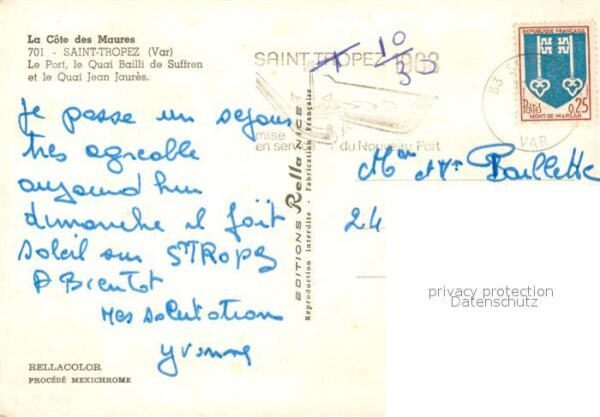 La Côte des Maures
701 - SAINT-TROPEZ (Var)
Le Port, le Quai Bailli de Suffren
et le Quai Jean Jaurès.
Je passe un sejour
tres agreable
aujourd hui
dimanche il fait
soleil sur STROPEZ
A Bientot
Mes salutation
Yvonne
RELLACOLOR
PROCÉDÉ MEXICHROME
EDITIONS Rella NICE
Reproduction interdite - Fabrication Française
SAINT TROPEZ
mise
en service du Nouveau Port
10
30
REPUBLIQUE FRANCAISE
Postes 0,25
MONT-DE-MARSAN
83
VAR
24
privacy protection
Datenschutz